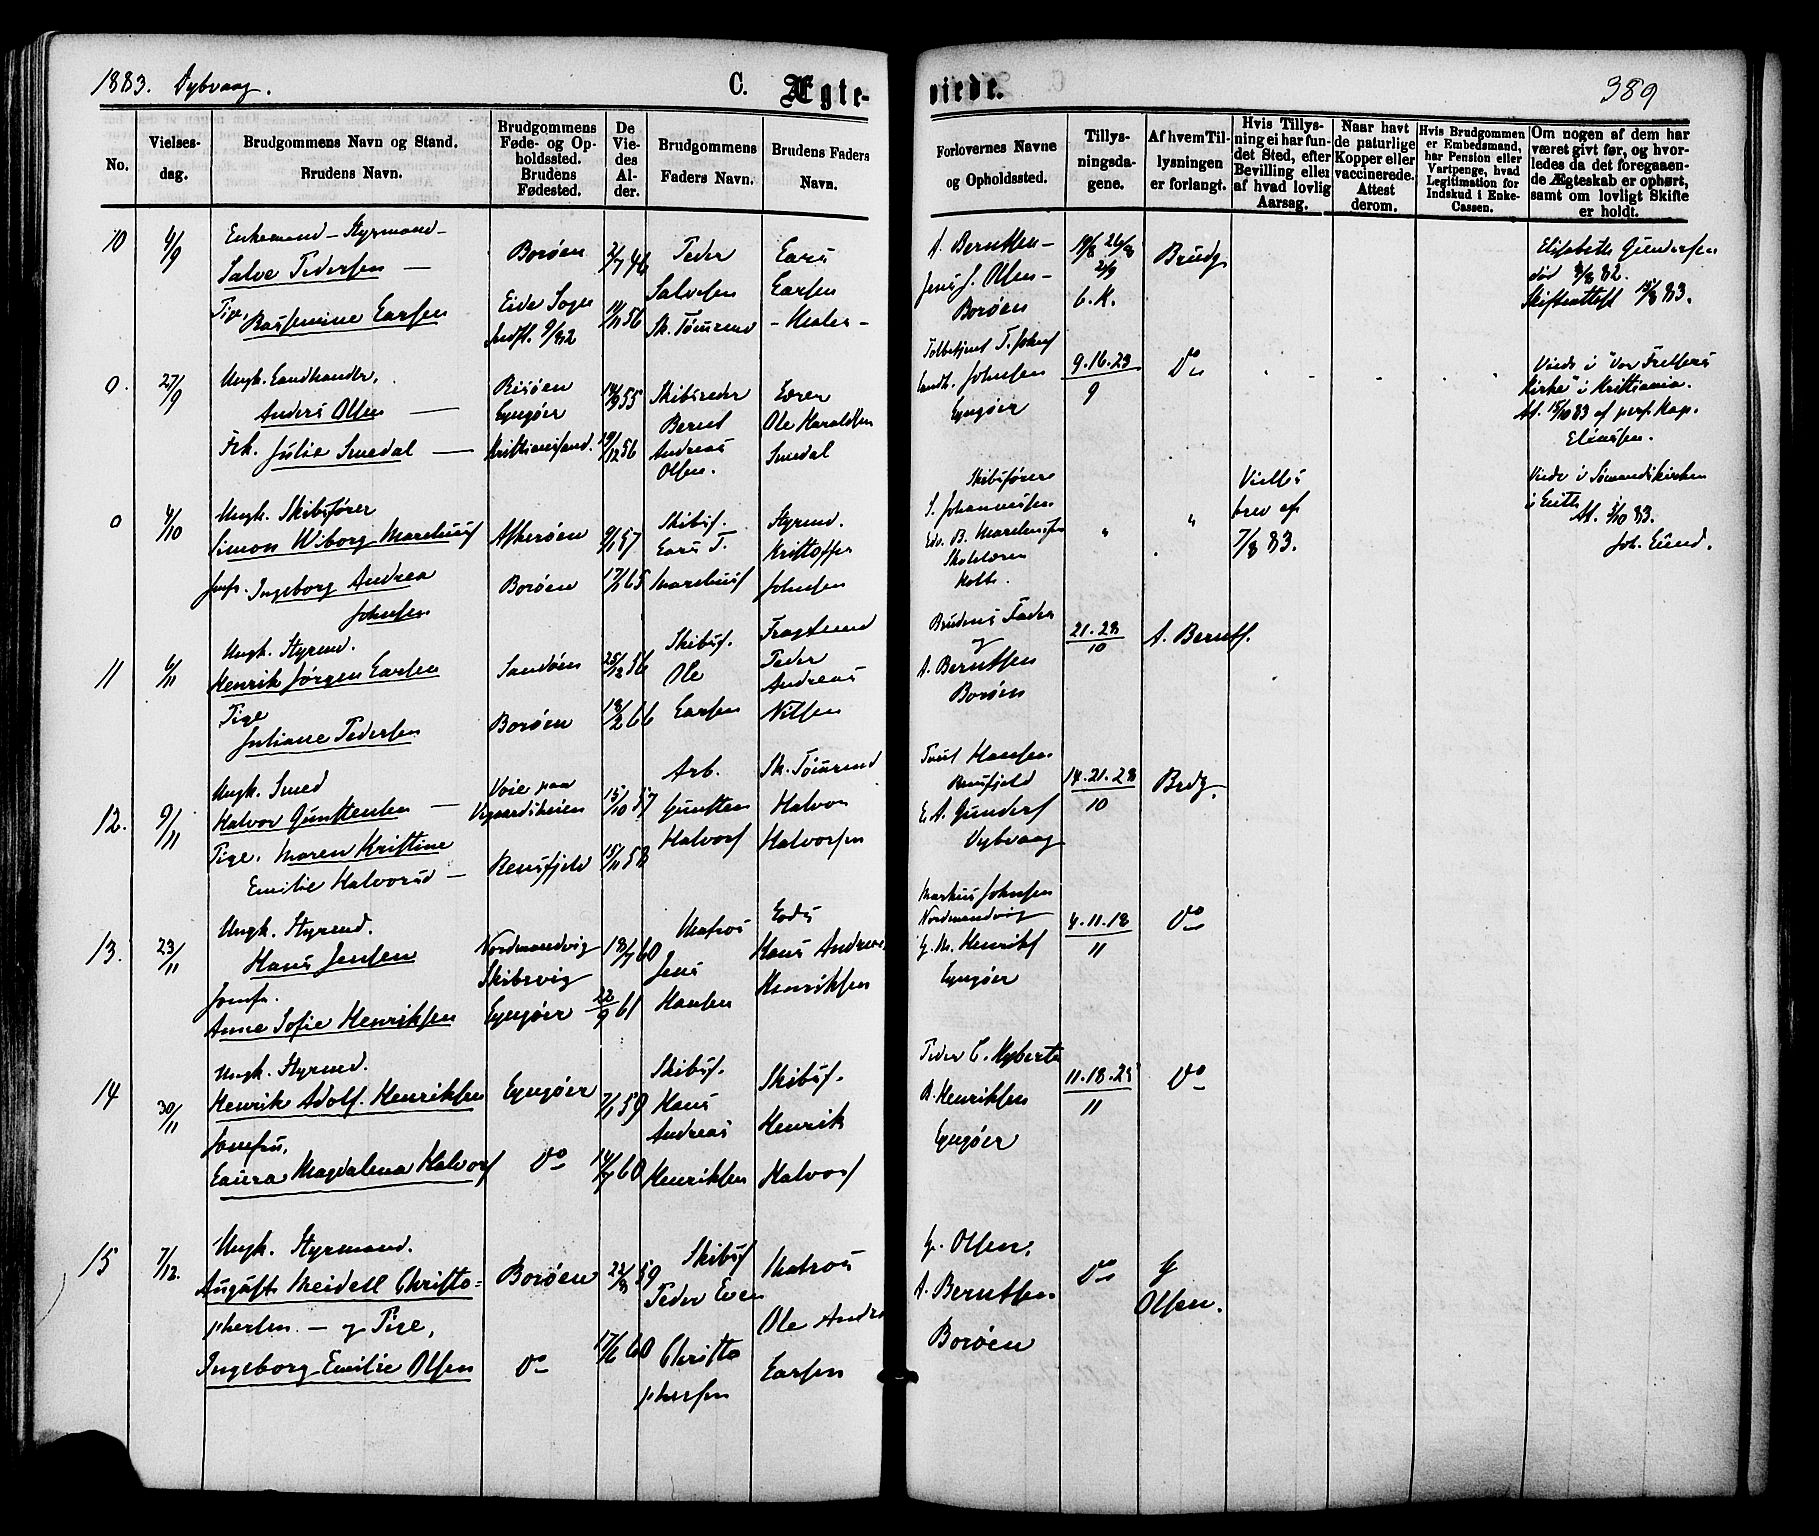 1883. Dybvaag.
C. Ægte-
viede.
389
No.
Vielses-
dag.
Brudgommens Navn og Stand.
Brudens Navn.
Brudgommens
Føde- og Op-
holdssted.
Brudens
Fødested.
De
Vie-
des
Al-
der.
Brudgommens
Faders Navn.
Brudens Faders
Navn.
Forlovernes Navne
og Opholdssted.
Tillys-
ningsda-
gene.
Af hvem Til-
lysningen
er forlangt.
Hvis Tillys-
ning ei har fun-
det Sted, efter
Bevilling eller
af hvad lovlig
Aarsag.
Naar havt
de naturlige
Kopper eller
vaccinerede.
Attest
derom.
Hvis Brudgommen
er Embedsmand,
har Pension eller
Vartpenge, hvad
Legitimation for
Indskud i Enke-
Cassen.
Om nogen af dem har
været givt før, og hvor-
ledes da det foregaaen-
de Ægteskab er ophørt,
samt om lovligt Skifte
er holdt.
10
4/9
Enkemand - Styrmand -
Salve Pedersen
Pige,
Rasmine Larsen
Borøen
Eide Sogn
Indfl. 9/82
2/7 46
11/11 56
Peder
Salvesen
Sk. Tømrmd
Lars
Larsen
- Maler -
A. Berntsen -
Jens J. Olsen -
Borøen
19/8 26/8
2/9
6. K.
Brudg
Elisabeth Gundersen
død 8/8 82.
Skifteattest 15/8 83.
0.
27/9
Ungk. Landhandler,
Anders Olsen
Frk. Julie Smedal
Risøen
Lyngøer
Kristiansand.
14/9 55
19/12 56
Skibsreder
Bernt
Andreas
Olsen.
Lærer
Ole Haraldsen
Smedal
Toldbetjent T. Johns
Landh. Johnsen
Lyngøer
9.16.23
9
Do
Viede i "Vor Frelsers
Kirke" i Kristiania.
At. 15/10 83 af pers. Kap.
Eliassen.
0
4/10
Ungk. Skibsfører
Simon Wiborg Marcussen
Jomfr. Ingeborg Andrea
Johnsen
Askerøen
Borøen
9/1 57
17/1 65
Skibsf.
Lars T.
Marcuss
Styrmd.
Kristoffer
Johnsen
Skibsfører
S. Johannessen
Edv. B. Marcussen
Skolelærer
Holte.
"
"
Vielses
brev af
7/8 83.
Viede i Sømandskirken
i Leith
At. 5/10 83.
Joh. Lund.
11
6/11
Ungk. Styrmd.
Henrik Jørgen Larsen
Pige
Juliane Pedersen
Sandøen
Borøen
25/12 56
18/2 66
Skibsf.
Ole
Larsen
Fragtmand
Peder
Andreas
Nilsen
Brudens Fader
og
A. Berntsen
Borøen
21.28
10
A. Bernts.
12.
9/11
Ungk. Smed
Halvor Gunstensen
Pige. Maren Kristine
Emilie Halvorsd
Voie paa
Vegaardsheien
Rensfjeld
15/10 57
15/11 58
Arb.
Gunsten
Halvors
Sk. Tømrmd
Halvor
Halvorsen
Hansen
Rensfjeld
L. A. Gunders
Dybvaag
14.21.28
10
Brdg.
13.
23/11
Ungk. Styrmd.
Hans Jensen
Jomfr.
Anne Sofie Henriksen
Nordmandvig
Skibsvig
Lyngøer
18/7 60
22/9 61
Matros
Jens
Hansen
Lods
Hans Andreas
Henriksen
Markus Johnsen
Nordmandvig
H. M. Henriks
Lyngøer
4.11.18
11
Do
14
30/11
Ungk. Styrmd.
Henrik Adolf Henriksen
Jomfru,
Laura Magdalena Halvors
Lyngøer
Do
7/1 59
14/7 60
Skibsf.
Hans
Andreas
Henriksen
Skibsf.
Henrik
Halvors
Peder C.
B. Henriksen
Lyngøer
11.18.25
11
Do
15
7/12.
Ungk. Styrmand.
August Meidell Christo-
phersen. - og Pige,
Ingeborg Emilie Olsen
Borøen
Do
22/8 59
17/6 60
Skibsf
Peder Even
Christo
phersen
Matros
Ole Andr
Larsen
G. Olsen.
A. Berntsen.
Borøen
Do
G
Olsen.